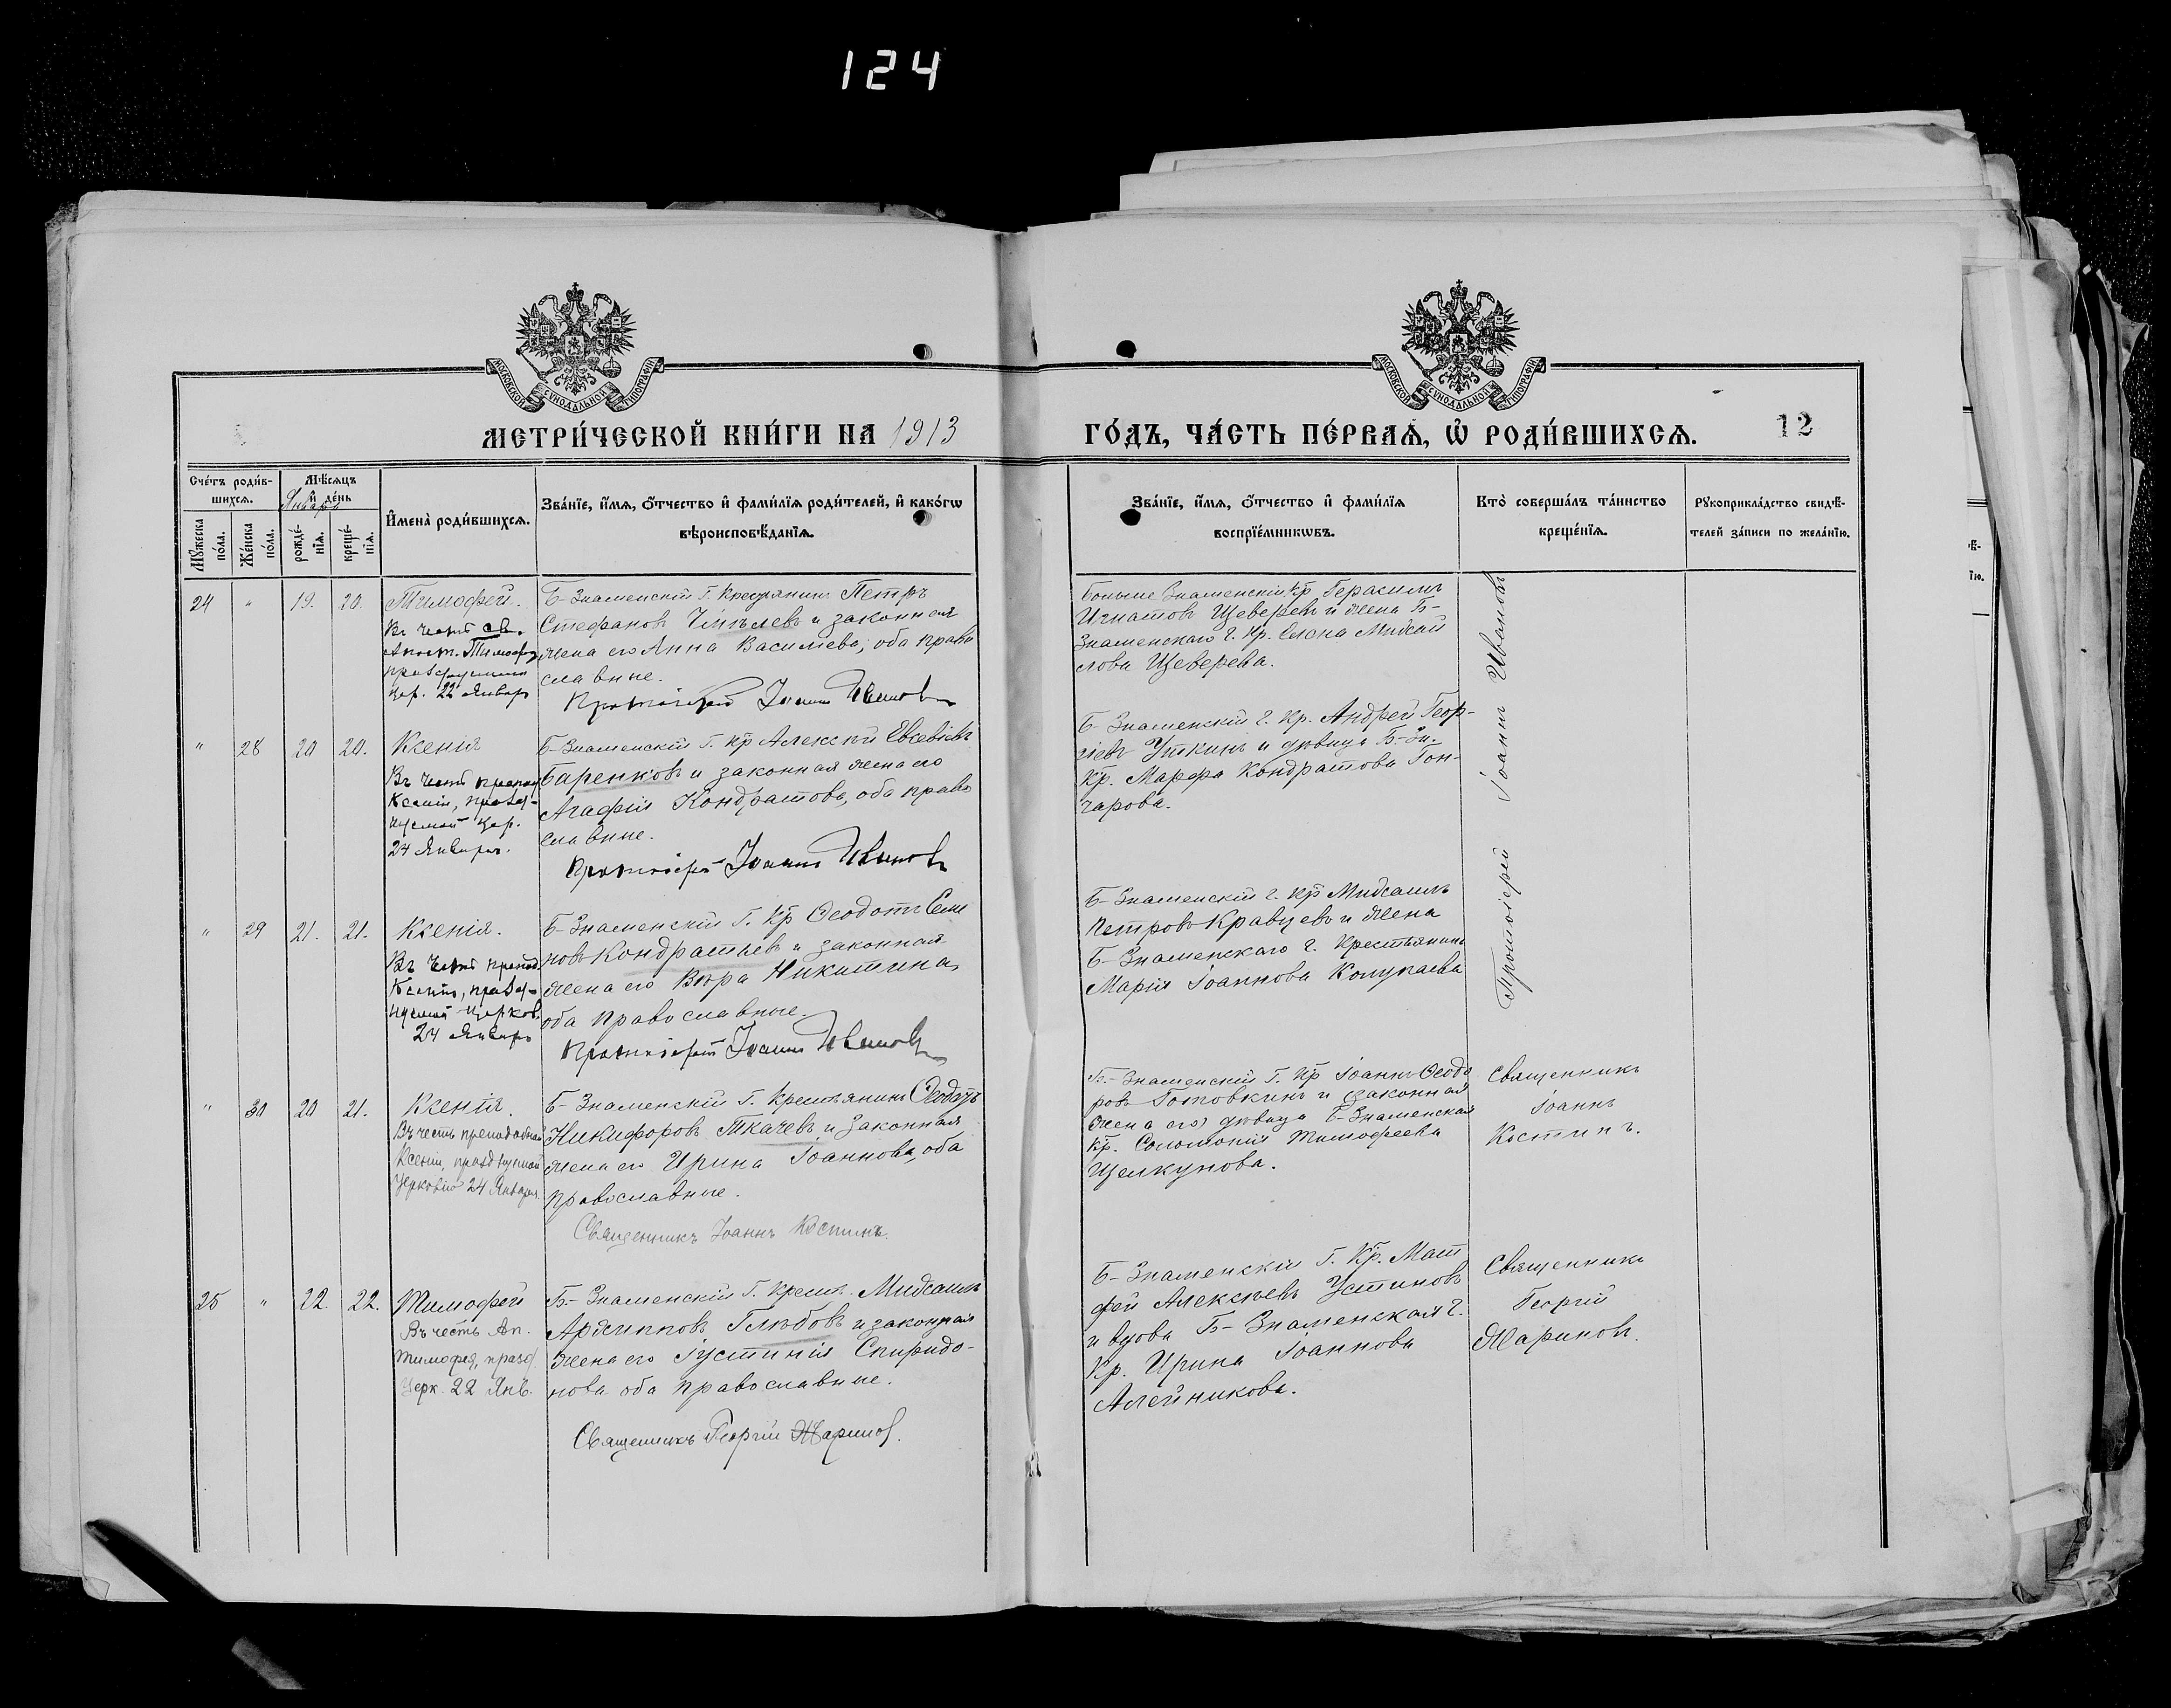 124
МОСКОВСКОЙ СѴНОДАЛЬНОЙ ТИПОГРАФІИ
МОСКОВСКОЙ СѴНОДАЛЬНОЙ ТИПОГРАФІИ
МЕТРИ́ЧЕСКОЙ КНИ́ГИ НА 1913
ГО́ДЪ, ЧА́СТЬ ПЕ́РВАѦ, Ѡ҆ РОДИ́ВШИХСѦ.
12
Сче́тъ роди́в-
шихсѧ.
Мѣ́сѧцъ
и҆ де́нь
Январь
Мꙋ́жеска
по́ла.
Же́нска
по́ла.
рожде́-
нїѧ.
креще́-
нїѧ.
И҆мена̀ роди́вшихсѧ.
Зва́нїе, и҆́мѧ, ѻ҆́тчество и҆ фами́лїѧ роди́телей, и҆ како́гѡ
вѣроисповѣ́данїѧ.
Зва́нїе, и҆́мѧ, ѻ҆́тчество и҆ фами́лїѧ
воспрїе́мникѡвъ.
Кто̀ соверша́лъ та́инство
креще́нїѧ.
Рꙋкоприкла́дство свидѣ́-
телей за́писи по жела́нїю.
24 " 19. 20.
Тимофей.
Въ честь св.
Апост. Тимофея
празднуемаго
Цер. 22 Января
Б-Знаменскій Г. Крестьянинъ Петръ
Стефановъ и законная
жена его Анна Васильева, оба право
славные.
Протоіерей Іоаннъ Ивановъ
Больше Знаменскій Кр Герасимъ
Игнатовъ Щеверевъ и жена Б-
Знаменскаго г. Кр. Елена Мидсаи
лова Щеверева.
Протоіерей Іоаннъ Ивановъ
" 28 20 20.
Ксенія
Въ честь препод
Ксеніи, празд-
нуемой Цер.
24 Января.
Б-Знаменскій Г. Кр Алексѣй Евсевіевъ
Баренковъ и законная жена его
Агафія Кондратова, оба право
славные.
Протоіерей Іоаннъ Ивановъ
Б-Знаменскій г. Кр. Андрей Геор-
гіевъ Уткинъ и дѣвица Б-Зн.
Кр. Марфа Кондратова Гон-
чарова.
" 29 21. 21.
Ксенія.
Въ честь препод.
Ксеніи, празд-
нуемой Церков.
24 Января
Б-Знаменскій Г. Кр Ѳеодотъ Семе
новъ Кондратьевъ и законная
жена его Вѣра Никитина,
оба православные.
Протоіерей Іоаннъ Ивановъ
Б-Знаменскій г. Кр Мидсаилъ
Петровъ Кравцевъ и жена
Б-Знаменскаго г. Крестьянина
Марія Іоаннова Колупаева
" 30 20 21.
Ксенія.
Въ честь преподобной
Ксеніи, празднуемой
Церковію 24 Января.
Б-Знаменскій Г. Крестьянинъ Ѳеодотъ
Никифоровъ Ткачевъ и законная
жена его Ирина Іоаннова, оба
православные.
Священникъ Іоаннъ Костинъ.
Б.-Знаменскій Г. Кр Іоаннъ Ѳеодо
ровъ Готовкинъ и законная
жена его дѣвица Б-Знаменская
Кр. Соломонія Тимофеева
Щелкунова.
Священникъ
Іоаннъ
Костинъ.
25 " 22. 22.
Тимофей
Въ честь Ап.
Тимофея, празд.
Церк. 22 Янв.
Б.-Знаменскій Г. Крест. Мидсаилъ
Архипповъ Глѣбовъ и законная
жена его Іустинія Спиридо-
нова оба православные.
Священникъ Георгій Жариновъ.
Б-Знаменскій Г. Кр. Мат
фей Алексѣевъ Устиновъ
и вдова Б-Знаменская г.
Кр. Ирина Іоаннова
Алейникова.
Священникъ
Георгій
Жариновъ.